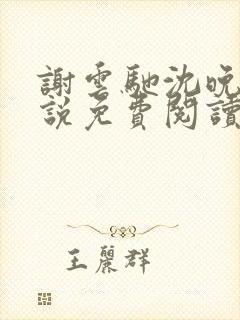 謝雲馳沈晚
說免費閱讀
王麗群